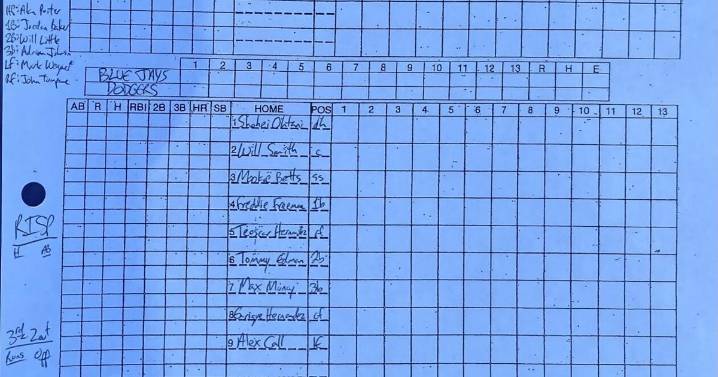 HP: Alan Porter
1B: Jordan Baker
2B: Will Little
3B: Adrian Johnson
LF: Mark Wegner
RF: John Tumpane
1 2 3 4 5 6 7 8 9 10 11 12 13 R H E
BLUE JAYS
DODGERS
AB R H RBI 2B 3B HR SB HOME POS 1 2 3 4 5 6 7 8 9 10 11 12 13
1 Shohei Ohtani dh
2 Will Smith c
3 Mookie Betts ss
4 Freddie Freeman 1b
5 Teoscar Hernandez rf
6 Tommy Edman 2b
7 Max Muncy 3b
8 Enrique Hernandez cf
9 Alex Call lf
RISP
H AB
3rd 2out
Runs Off